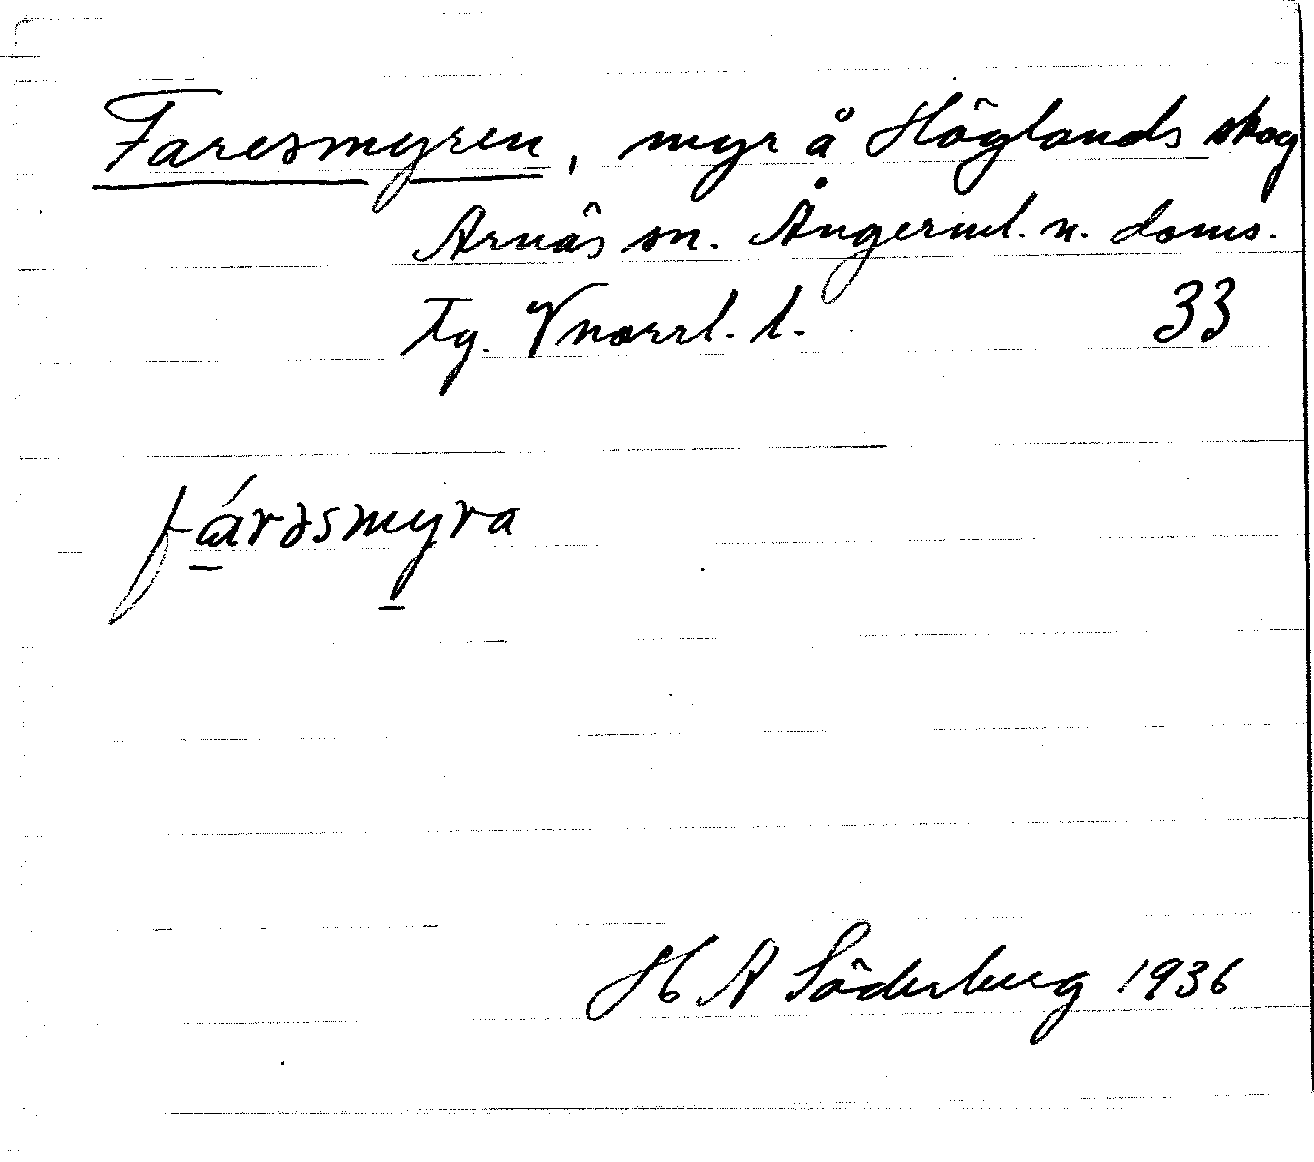 Faresmyren, myr å Höglands skog
Arnäs sn. Ångerml. n. doms.
tg. Vnorrl. l. 33
fárəsmyra
H A Söderberg 1936